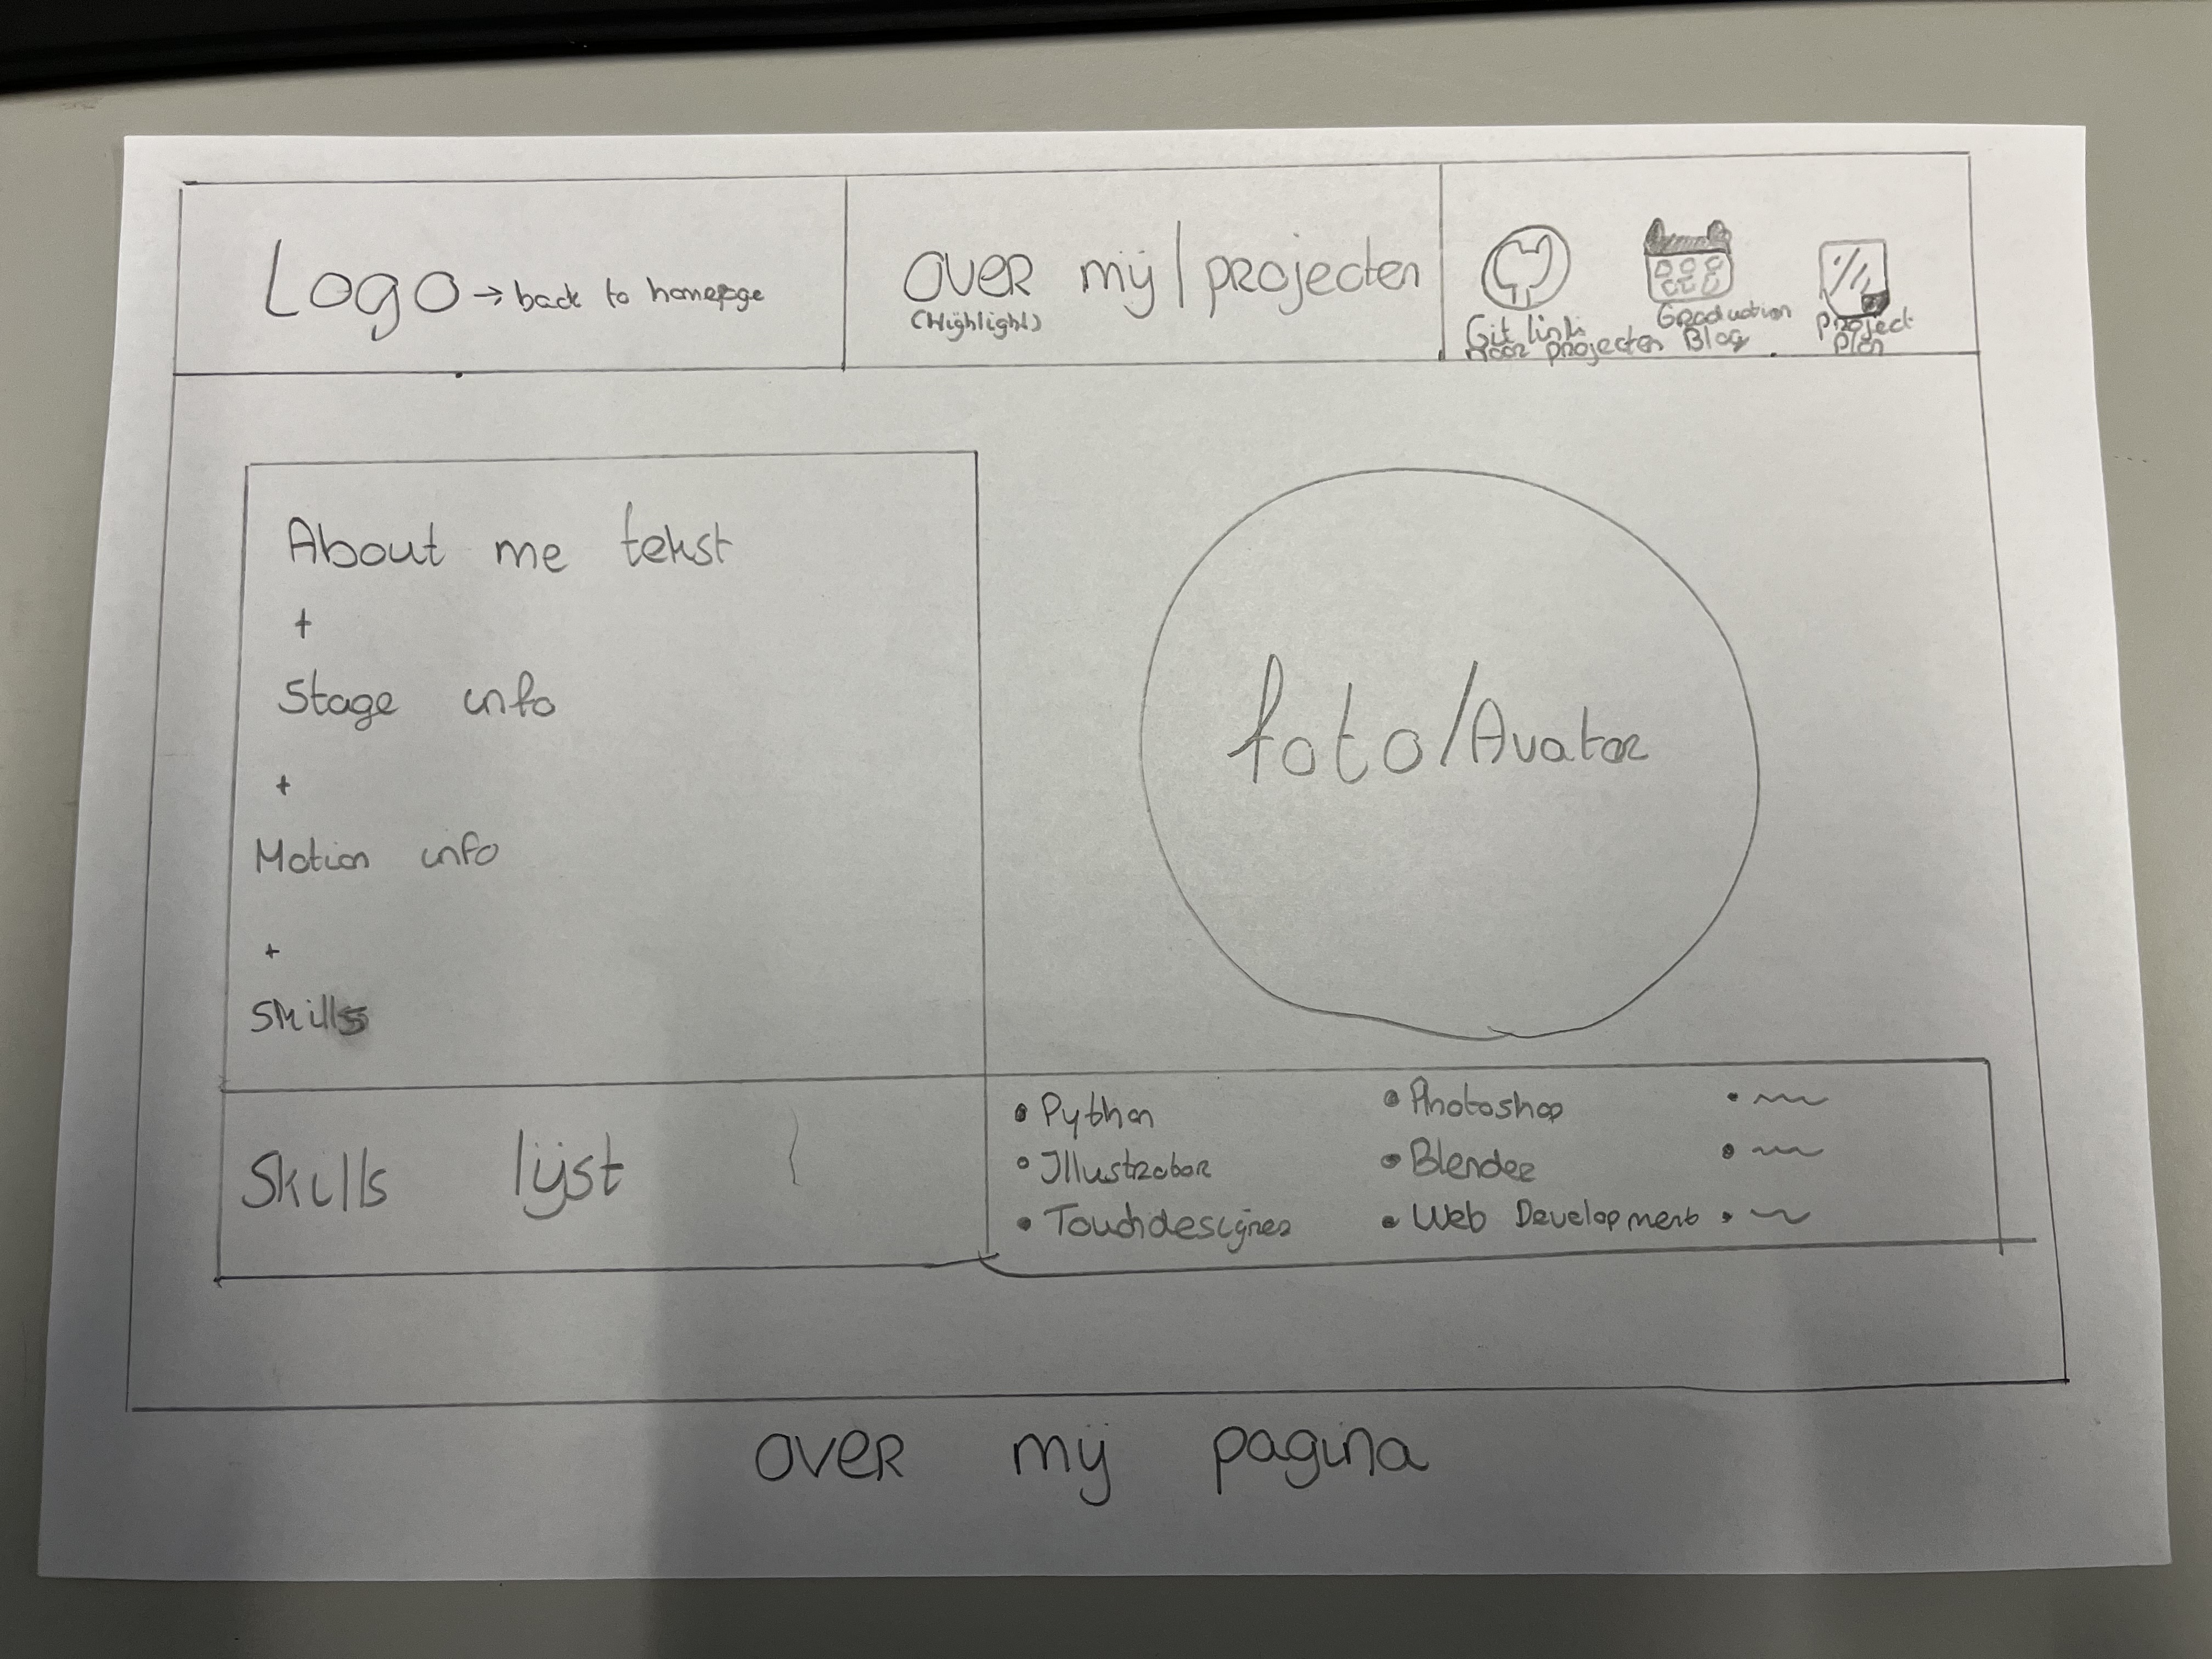 Logo → back to homepage
Over mij | projecten
(Highlights)
Git link
voor projecten
Graduation
Blog
project
plan
About me tekst
+
Stage info
+
Motion info
+
Skills
foto/Avatar
Skills lijst
• Python
• Illustrator
• Touchdesigner
• Photoshop
• Blender
• Web Development
over mij pagina